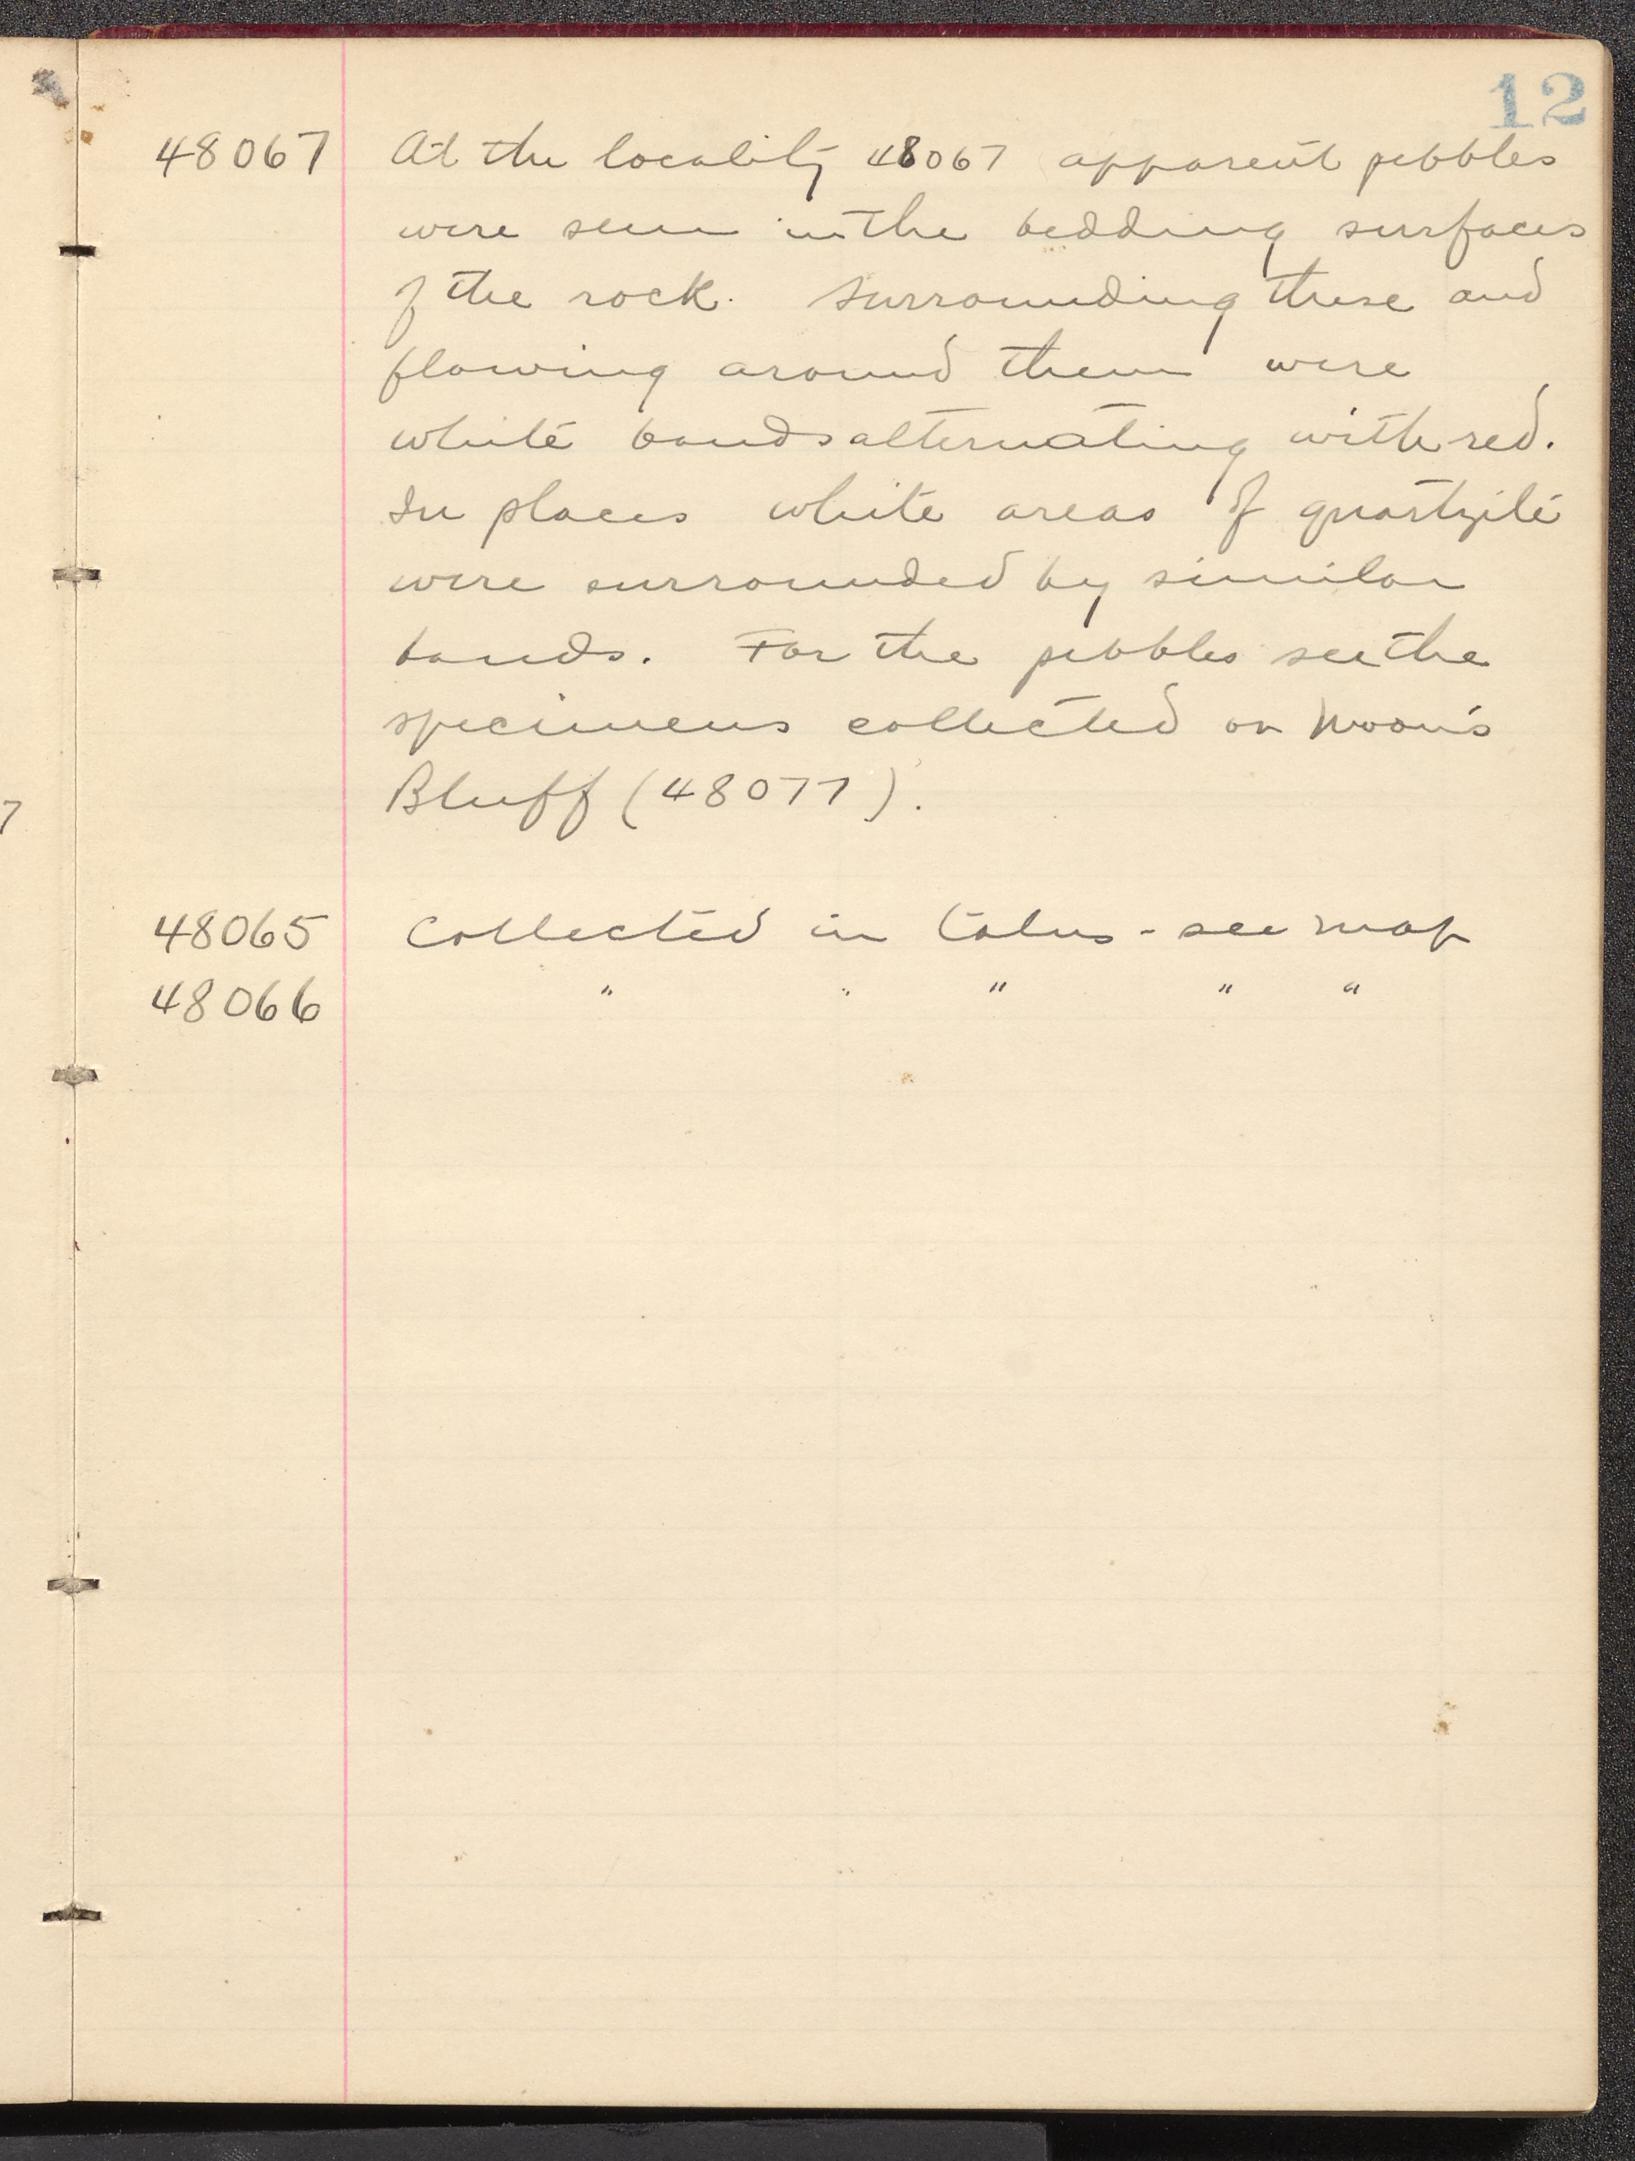 12
48067 At the locality 48067 apparent pebbles
were seen in the bedding surfaces
of the rock. Surrounding these and
flowing around them were
white bands alternating with red.
In places white areas of quartzite
were surrounded by similar
bands. For the pebbles see the
specimens collected on Moon's
Bluff (48077).
7
48065 Collected in talus - see map
48066 " " " " "